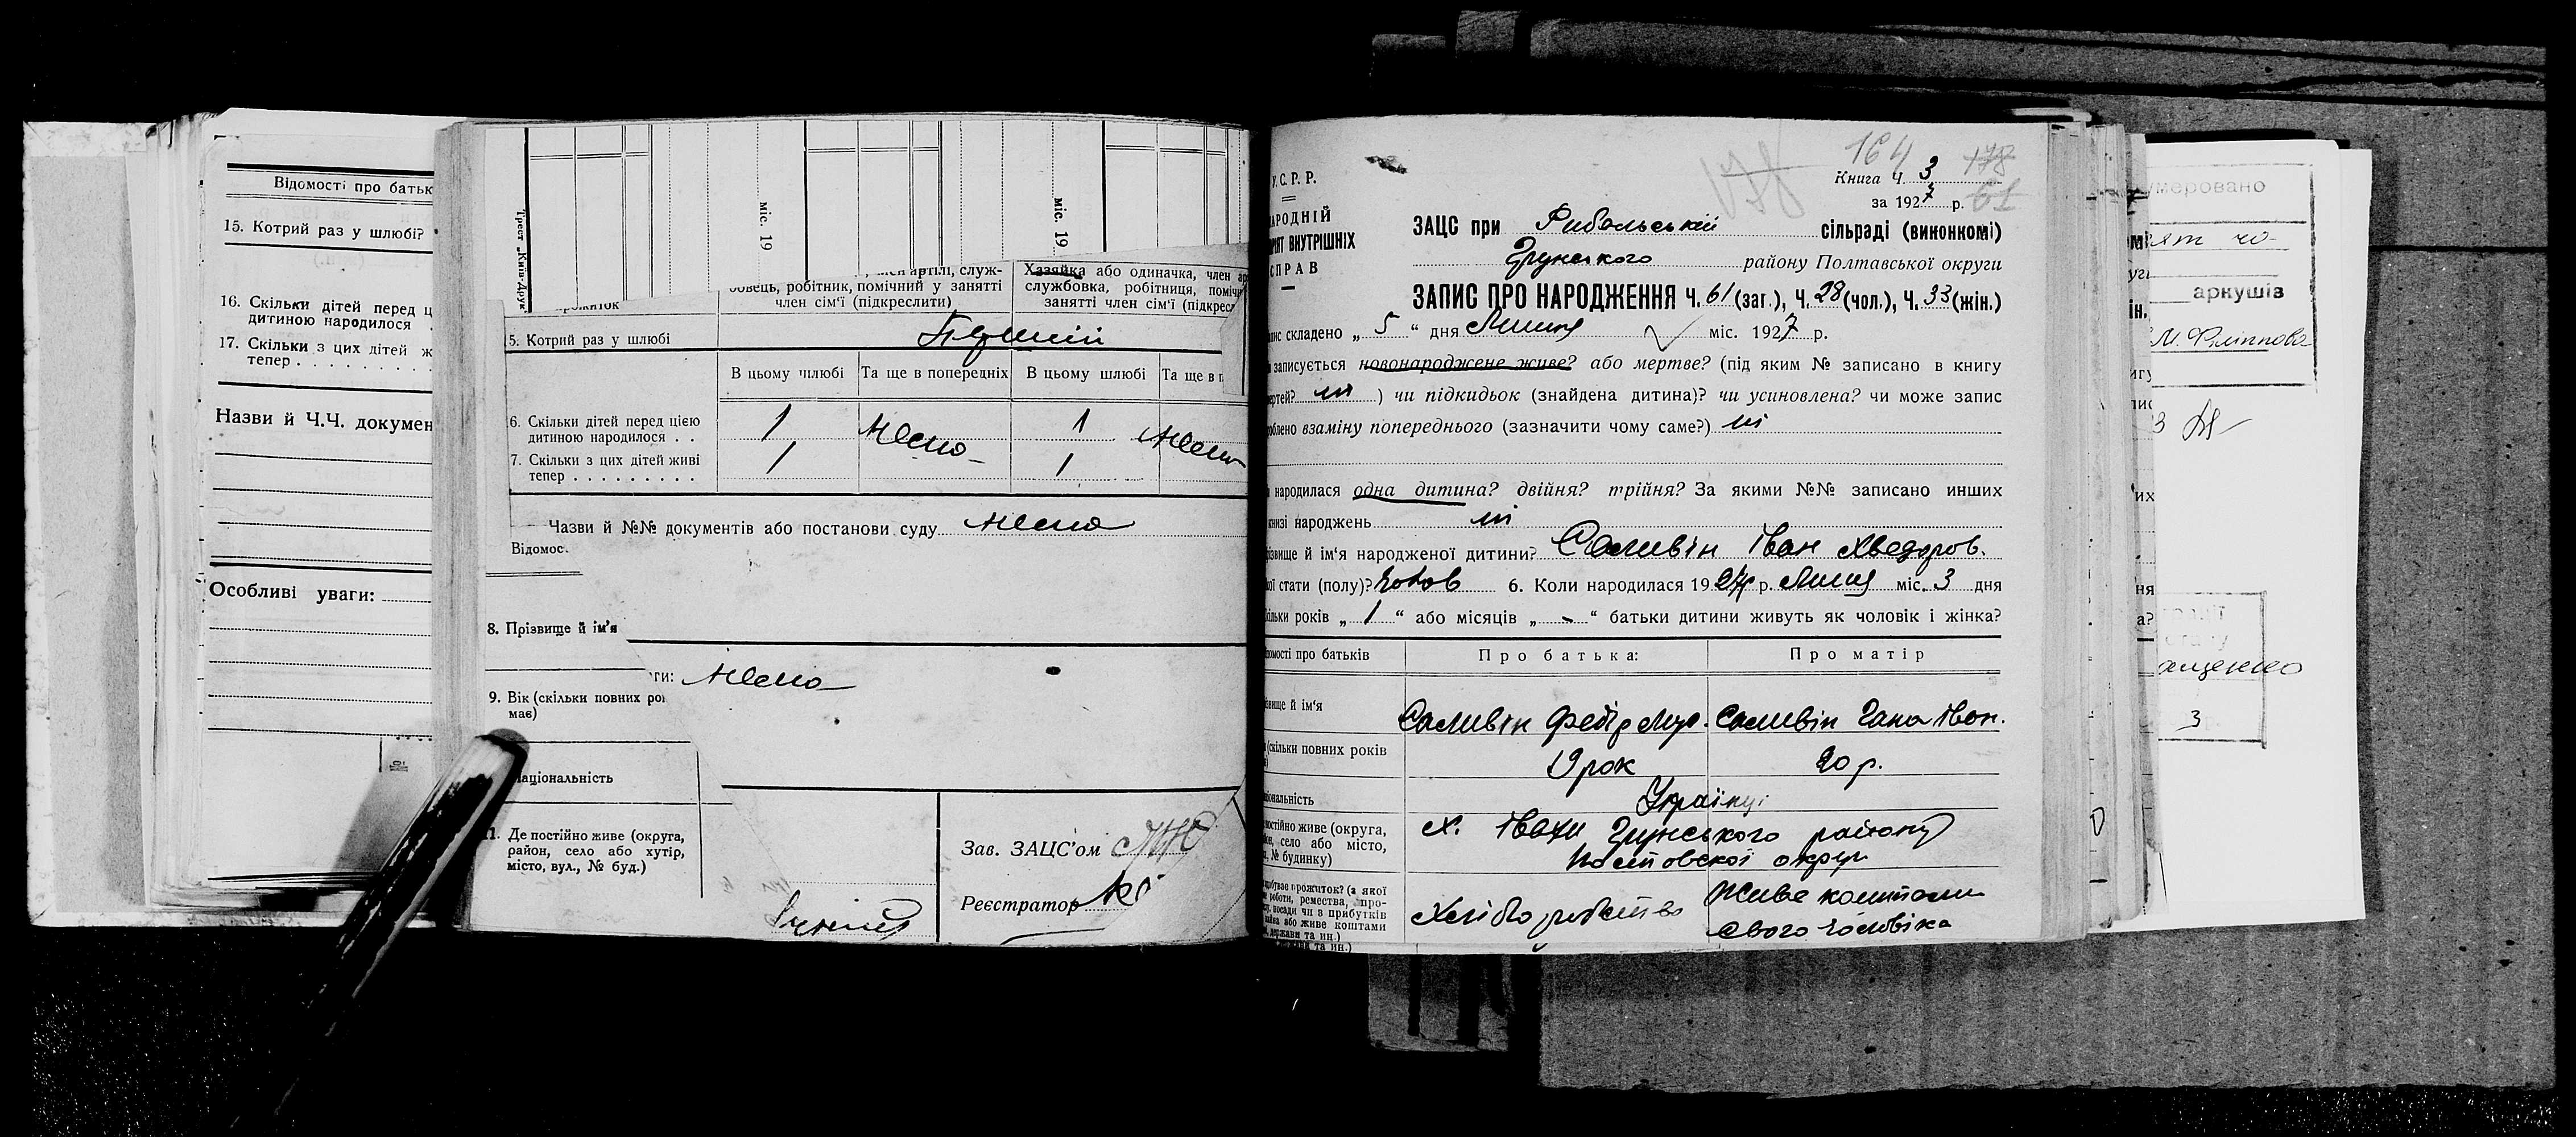 Відомості про батьк
15. Котрий раз у шлюбі?
16. Скільки дітей перед ц
дитиною народилося .
17. Скільки з цих дітей ж
тепер . . . . . . . . .
Назви й Ч.Ч. докумен
Особливі уваги:
Трест „Київ-Друк
міс. 19
міс. 19
артілі, служ-
бовець, робітник, помічний у занятті
член сім'ї (підкреслити)
Хазяйка або одиначка, член ар
службовка, робітниця, помічн
занятті член сім'ї (підкрес
5. Котрий раз у шлюбі Перший
В цьому шлюбі Та ще в попередніх В цьому шлюбі Та ще в п
6. Скільки дітей перед цією
дитиною народилося . . 1 1
7. Скільки з цих дітей живі
тепер . . . . . . . . . 1 Нема 1 Нема
Назви й №№ документів або постанови суду Нема
Відомос
8. Прізвище й ім'я
ти: Нема
9. Вік (скільки повних рок
має)
аціональність
1. Де постійно живе (округа,
район, село або хутір,
місто, вул., № буд.)
Зав. ЗАЦС'ом
Реєстратор
164 178
178 Книга Ч. 3
за 1927 р. 61
У.С.Р.Р.
АРОДНІЙ
РІЯТ ВНУТРІШНІХ
СПРАВ
ЗАЦС при Рибальській сільраді (виконкомі)
Грунського району Полтавської округи
ЗАПИС ПРО НАРОДЖЕННЯ Ч. 61 (заг.), Ч. 28 (чол.), Ч. 33 (жін.)
пис складено „ 5 “ дня Липця міс. 1927 р.
записується новонароджене живе? або мертве? (під яким № записано в книгу
ертей? ні ) чи підкидьок (знайдена дитина)? чи усиновлена? чи може запис
облено взаміну попереднього (зазначити чому саме?) ні
народилася одна дитина? двійня? трійня? За якими №№ записано инших
книзі народжень ні
різвище й ім'я народженої дитини? Саливін Іван Хведоров.
кої стати (полу)? Чолов 6. Коли народилася 1927 р. Липця міс. 3 дня
кільки років „ 1 “ або місяців „ - “ батьки дитини живуть як чоловік і жінка?
ідомості про батьків Про батька: Про матір
звище й ім'я Саливін Федір Саливін Гана Іван.
(скільки повних років 19 рок 20 р.
ціональність Українці
постійно живе (округа,
он, село або місто,
, № будинку)
х. Івахи Грунського району
Полтовської округи
добуває прожиток? (з якої
роботи, ремества, про-
посади чи з прибутків
або живе коштами
держави та ин.)
Хліборобство
Живе коштами
свого чоловіка
умеровано
аркушів
М. Філіппова
ащенко
3